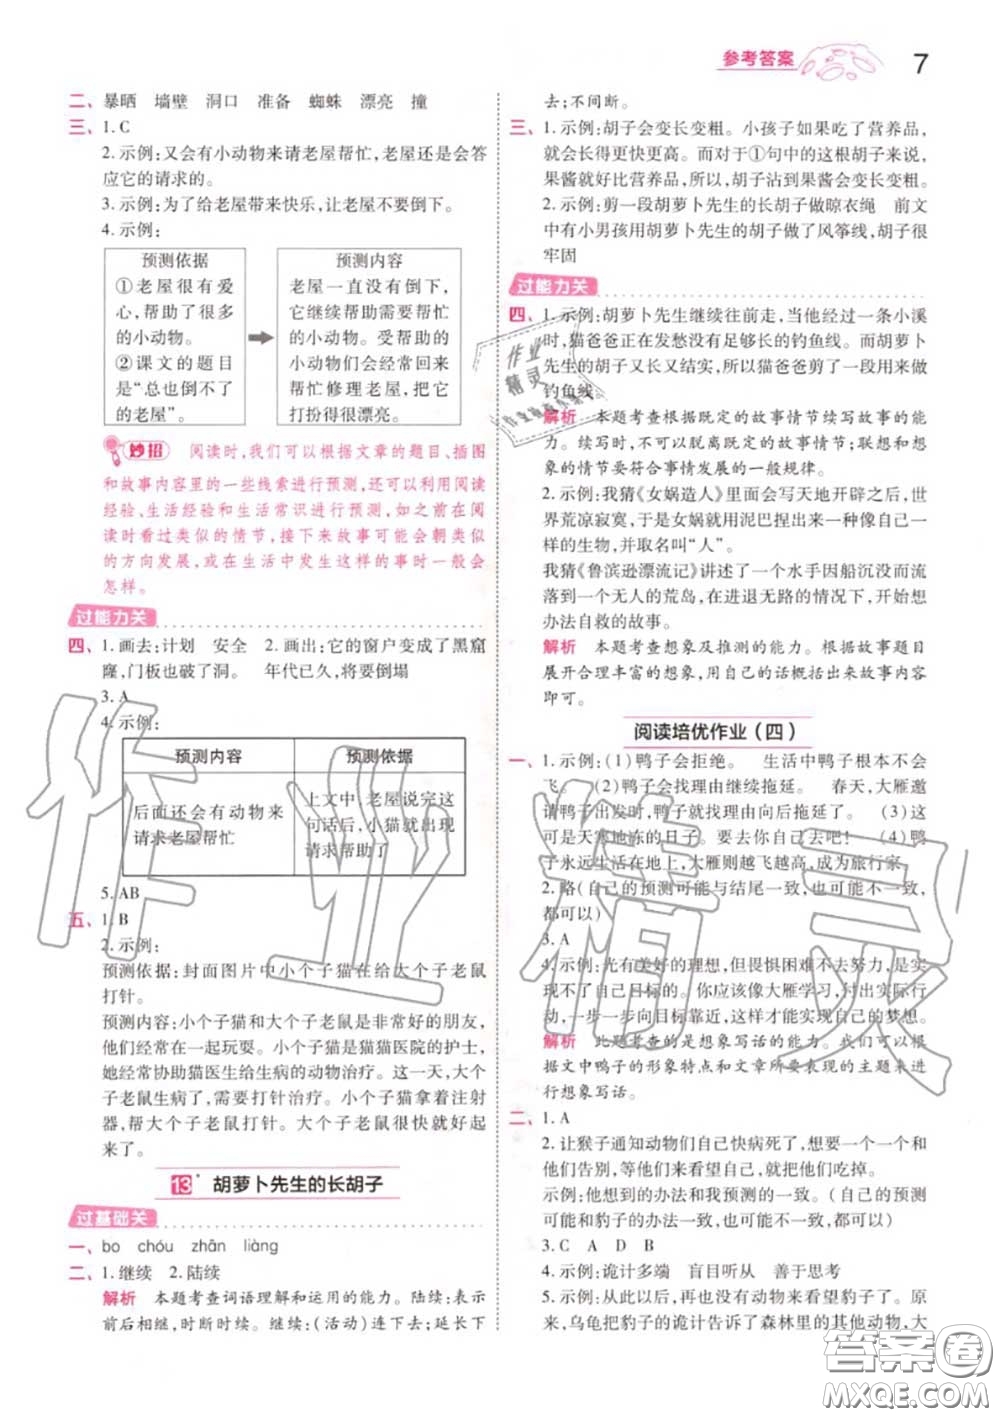 参考答案
7
二、暴晒 墙壁 洞口 准备 蜘蛛 漂亮 撞
三、1. C
2. 示例:又会有小动物来请老屋帮忙,老屋还是会答
应它的请求的。
3. 示例:为了给老屋带来快乐,让老屋不要倒下。
4. 示例:
预测依据
①老屋很有爱
心,帮助了很多
的小动物。
②课文的题目
是“总也倒不了
的老屋”。
预测内容
老屋一直没有倒下,
它继续帮助需要帮忙
的小动物。受帮助的
小动物们会经常回来
帮忙修理老屋,把它
打扮得很漂亮。
妙招 阅读时,我们可以根据文章的题目、插图
和故事内容里的一些线索进行预测,还可以利用阅读
经验、生活经验和生活常识进行预测,如之前在阅
读时看过类似的情节,接下来故事可能会朝类似
的方向发展,或在生活中发生这样的事时一般会
怎样。
过能力关
四、1. 画去:计划 安全 2. 画出:它的窗户变成了黑窟
窿,门板也破了洞。 年代已久,将要倒塌
3. A
4. 示例:
预测内容 预测依据
后面还会有动物来
请求老屋帮忙
上文中,老屋说完这
句话后,小猫就出现
请求帮助了
5. AB
五、1. B
2. 示例:
预测依据:封面图片中小个子猫在给大个子老鼠
打针。
预测内容:小个子猫和大个子老鼠是非常好的朋友,
他们经常在一起玩耍。小个子猫是猫猫医院的护士,
她经常协助猫医生给生病的动物治疗。这一天,大个
子老鼠生病了,需要打针治疗。小个子猫拿着注射
器,帮大个子老鼠打针。大个子老鼠很快就好起
来了。
13* 胡萝卜先生的长胡子
过基础关
一、bo chóu zhān liàng
二、1. 继续 2. 陆续
解析 本题考查词语理解和运用的能力。陆续:表示
前后相继,时断时续。继续:(活动)连下去;延长下
去;不间断。
三、1. 示例:胡子会变长变粗。小孩子如果吃了营养品,
就会长得更快更高。而对于①句中的这根胡子来说,
果酱就好比营养品,所以,胡子沾到果酱会变长变粗。
2. 示例:剪一段胡萝卜先生的长胡子做晾衣绳 前文
中有小男孩用胡萝卜先生的胡子做了风筝线,胡子很
牢固
过能力关
四、1. 示例:胡萝卜先生继续往前走,当他经过一条小溪
时,猫爸爸正在发愁没有足够长的钓鱼线。而胡萝卜
先生的胡子又长又结实,所以猫爸爸剪了一段用来做
钓鱼线。
解析 本题考查根据既定的故事情节续写故事的能
力。续写时,不可以脱离既定的故事情节;联想和想
象的情节要符合事情发展的一般规律。
2. 示例:我猜《女娲造人》里面会写天地开辟之后,世
界荒凉寂寞,于是女娲就用泥巴捏出来一种像自己一
样的生物,并取名叫“人”。
我猜《鲁滨逊漂流记》讲述了一个水手因船沉没而流
落到一个无人的荒岛,在进退无路的情况下,开始想
办法自救的故事。
解析 本题考查想象及推测的能力。根据故事题目
展开合理丰富的想象,用自己的话概括出来故事内容
即可。
阅读培优作业(四)
一、1. 示例:(1)鸭子会拒绝。 生活中鸭子根本不会
飞。 (2)鸭子会找理由继续拖延。 春天,大雁邀
请鸭子出发时,鸭子就找理由向后拖延了。 (3)这
可是天寒地冻的日子。要去你自己去吧! (4)鸭
子永远生活在地上,大雁则越飞越高,成为旅行家。
2. 略(自己的预测可能与结尾一致,也可能不一致,
都可以)
3. A
4. 示例:光有美好的理想,但畏惧困难不去努力,是实
现不了自己目标的。你应该像大雁学习,付出实际行
动,一步一步向目标靠近,这样才能实现自己的梦想。
解析 此题考查的是想象写话的能力。我们可以根
据文中鸭子的形象特点和文章所要表达的主题来进
行想象写话。
二、1. A
2. 让猴子通知动物们自己快病死了,想要一个一个和
他们告别,等他们来看望自己,就把他们吃掉。
示例:他想到的办法和我预测的一致。(自己的预测
可能和豹子的办法一致,也可能不一致,都可以)
3. C A D B
4. 示例:诡计多端 盲目听从 善于思考
5. 示例:从此以后,再也没有动物来看望豹子了。原
来,乌龟把豹子的诡计告诉了森林里的其他动物,大
作业精灵
作业精灵
答案圈
MXQE.COM